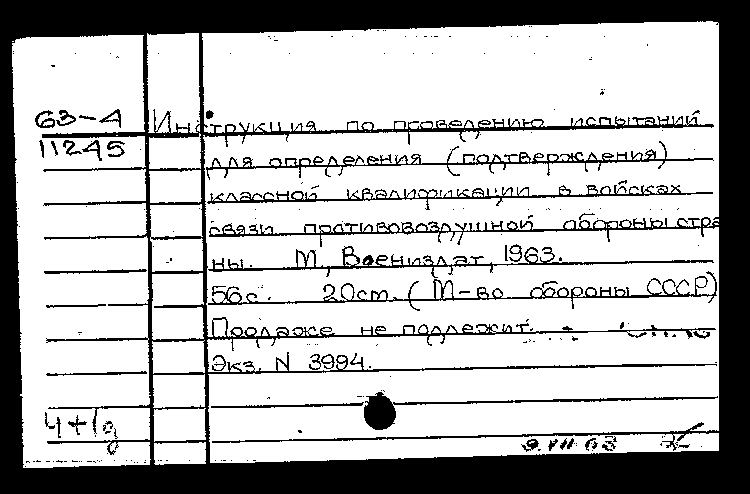 63-4 Инструкция по проведению испытаний
11245
для определения (подтверждения)
классной квалификации в войсках
связи противовоздушной обороны стра
ны. М, Воениздат, 1963.
56с. 20cm. (М-во обороны СССР)
Продаже не подлежит.
Экз. N 3994.
4+1д
9.VII 63